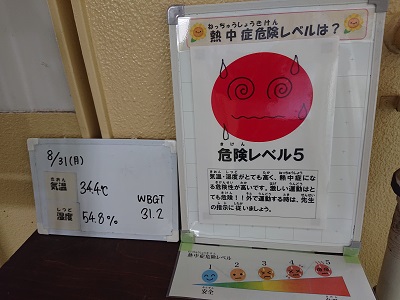 8/31(月)
きおん
気温 34.4℃
しつど
湿度 54.8%
WBGT
31.2
ねっちゅうしょうきけん
熱中症危険レベルは?
きけん
危険レベル5
気温・湿度がとても高く、熱中症にな
る危険性が高いです。激しい運動はと
ても危険!!外で運動する時は、先生
の指示に従いましょう。
熱中症危険レベル
1 2 3 4 5
安全